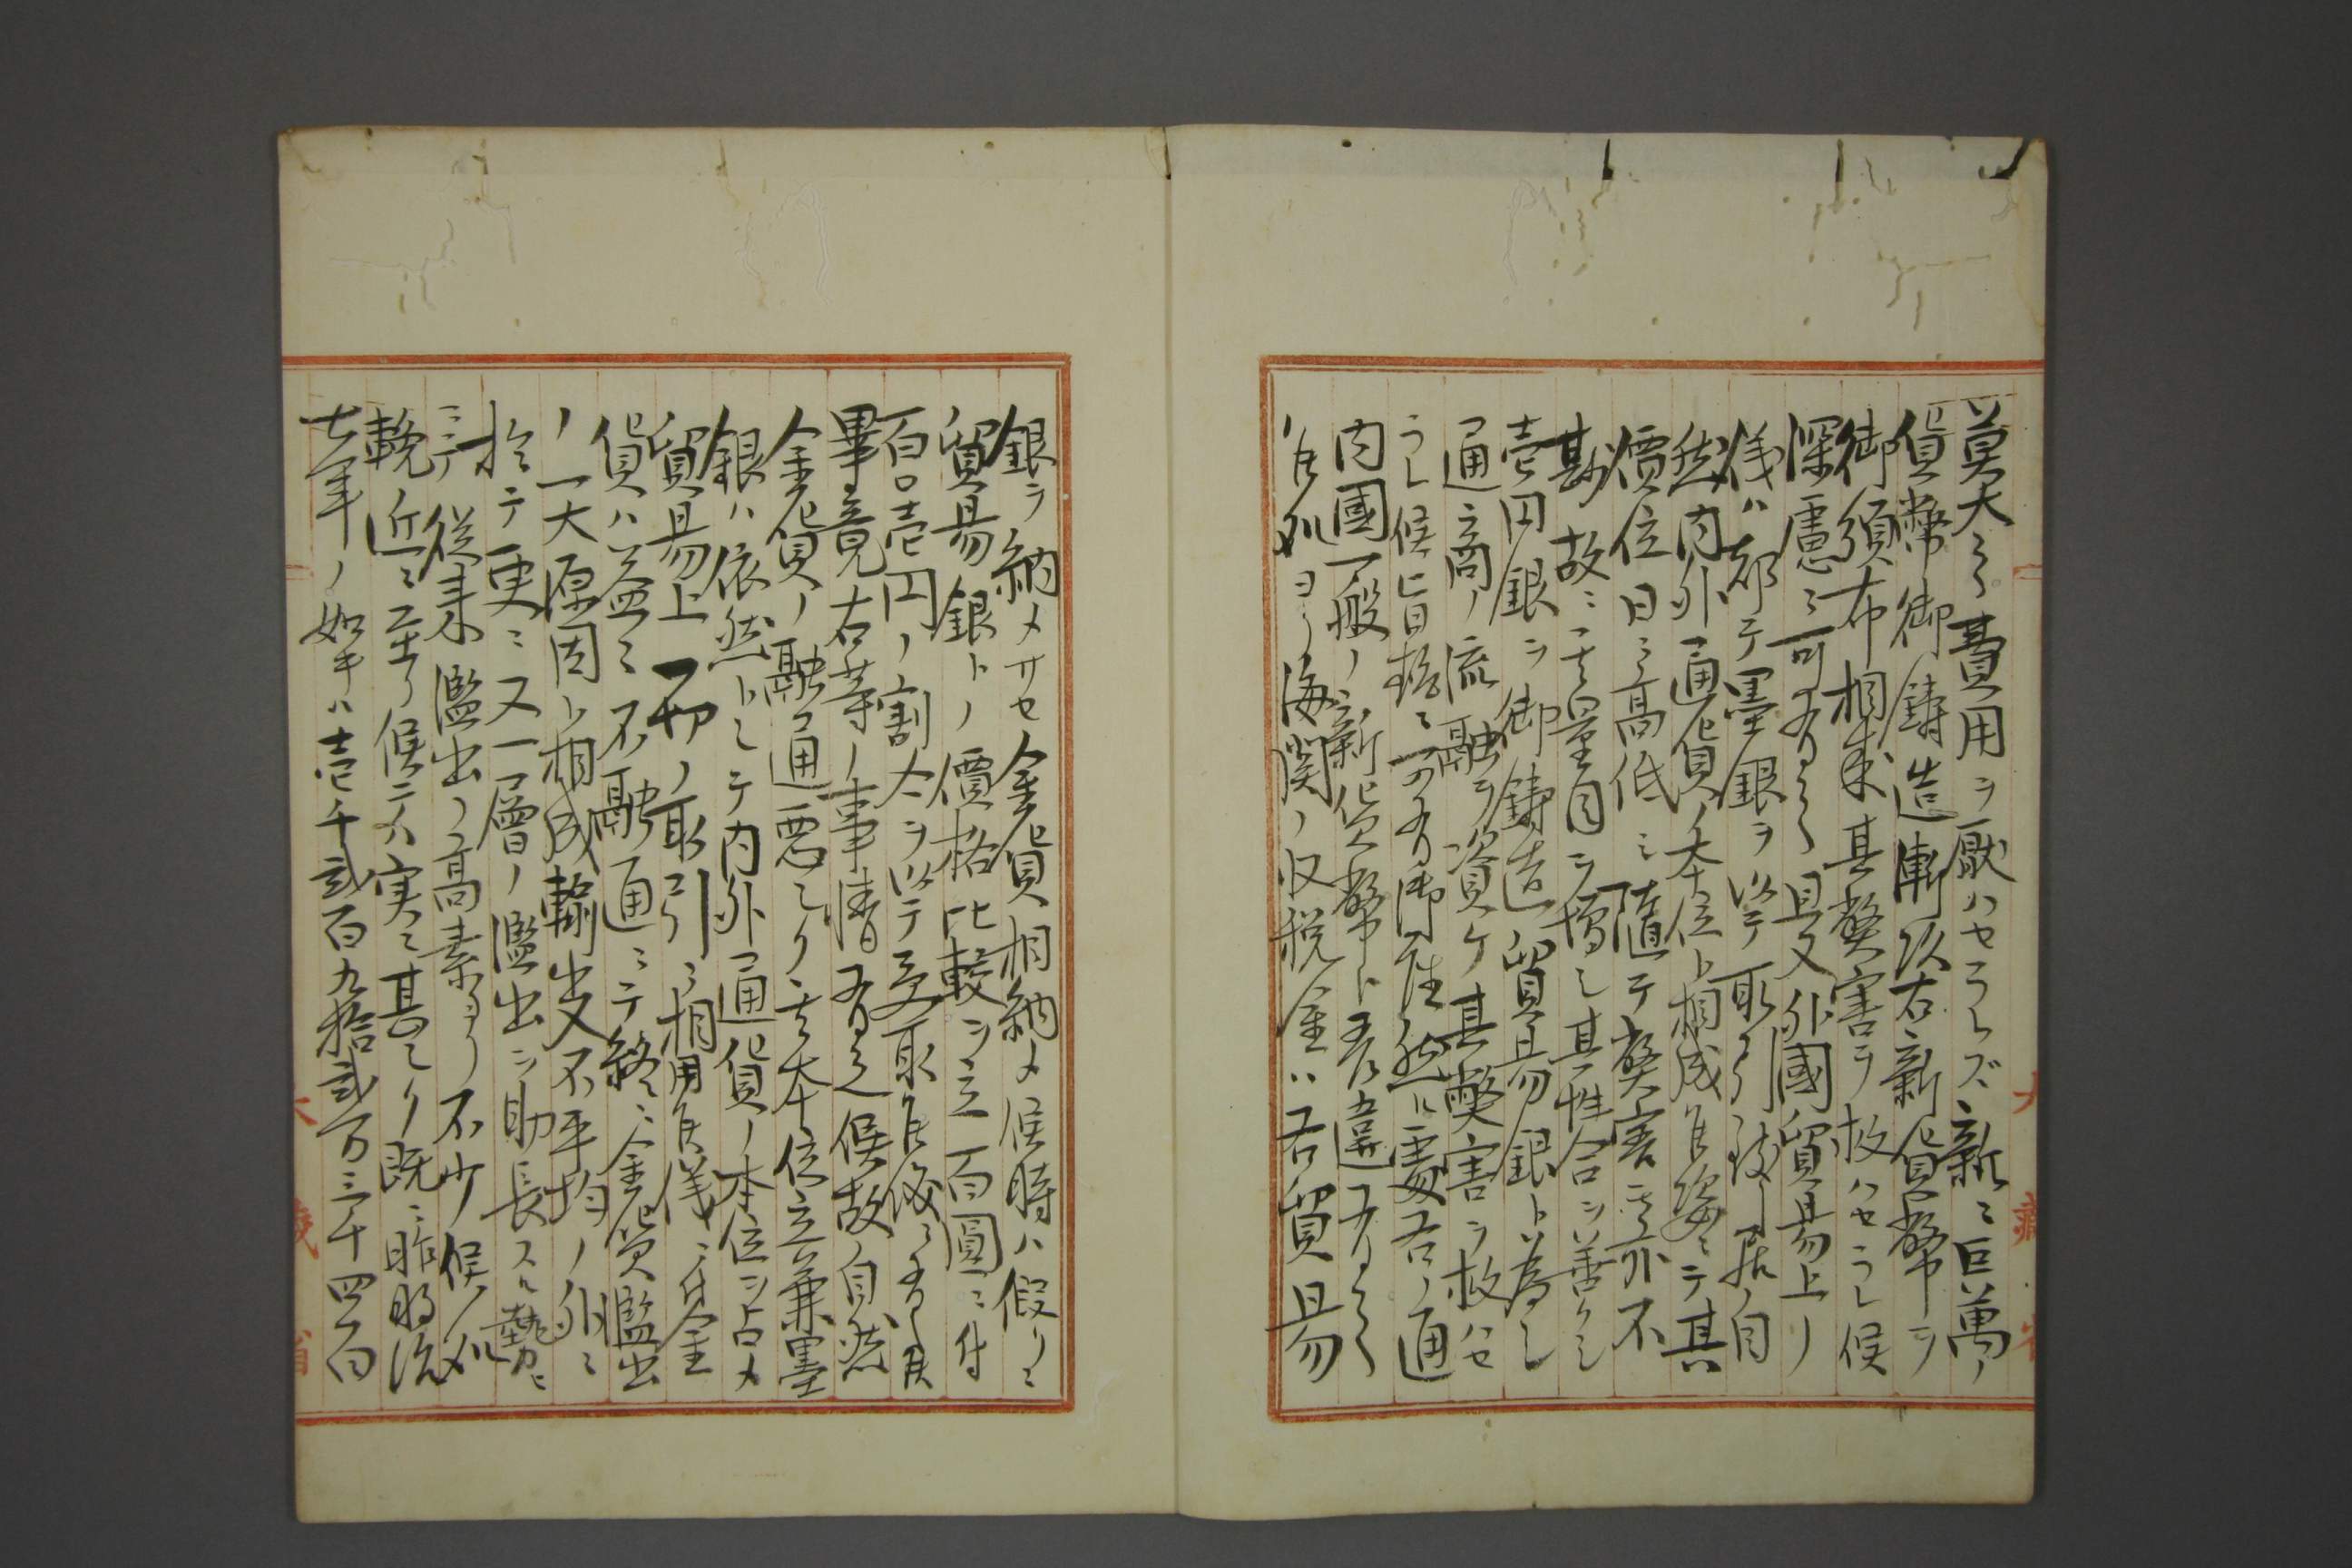 莫大之費用ヲ厭ハセラレズ新ニ巨萬ノ
貨幣御鋳造漸次右新貨幣ヲ
御頒布相成其弊害ヲ救ハセラレ候
深慮ニ可有之且又外國貿易上ノ
儀ハ都テ墨銀ヲ以テ取引致シ居自
然内外通貨ノ本位ト相成候姿ニテ其
價位日ニ高低シ隨テ弊害モ亦不
尠故ニ其量目ヲ増シ其性合ヲ善クシ
壱円銀ヲ御鋳造貿易銀ト為シ
通商ノ流融ヲ資ケ其弊害ヲ救ハセ
ラレ候旨趣ニ可有御座然ル處右ノ通
内國一般ノ新貨幣ト相違有之
候処ヨリ海関ノ収税金ハ右貿易
銀ヲ納メサセ金貨相納メ候時ハ假リニ
貿易銀トノ價格比較ヲ立百圓ニ付
百〇壱円ノ割合ヲ以テ受取候後ニ有之候
畢竟右等ノ事情有之候故自然
金貨ノ融通悪シク其本位立兼墨
銀ハ依然トシテ内外通貨ノ本位ヲ占メ
貿易上一切ノ取引ニ相用候儀ニ付金
貨ハ益々不融通ニテ終ニ金貨濫出
ノ一大原因ト相成輸出入不平均ノ外ニ
於テ更ニ又一層ノ濫出ヲ助長スル勢ニ
ニテ従来濫出ノ高素ヨリ不少候処
輓近ニ至リ候テハ実ニ甚シク既ニ昨明治
七年ノ如キハ壱千弐百九拾弐万三千四百
大藏省
大藏省